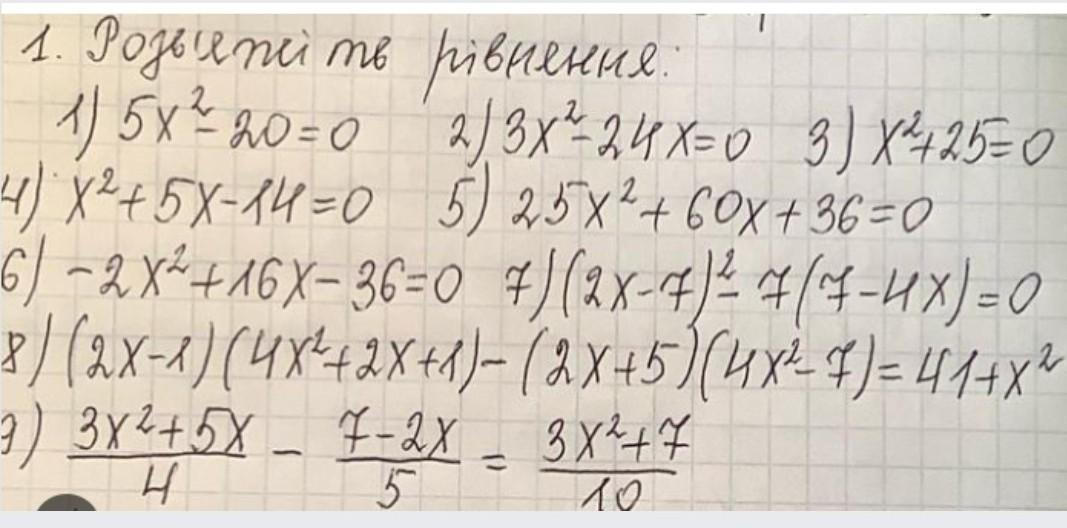 1. Розв'яжіть рівняння:
1) 5x² - 20 = 0 2) 3x² - 24x = 0 3) x² + 25 = 0
4) x² + 5x - 14 = 0 5) 25x² + 60x + 36 = 0
6) -2x² + 16x - 36 = 0 7) (2x - 7)² - 7(7 - 4x) = 0
8) (2x - 1)(4x² + 2x + 1) - (2x + 5)(4x² - 7) = 41 + x²
9) (3x² + 5x)/4 - (7 - 2x)/5 = (3x² + 7)/10